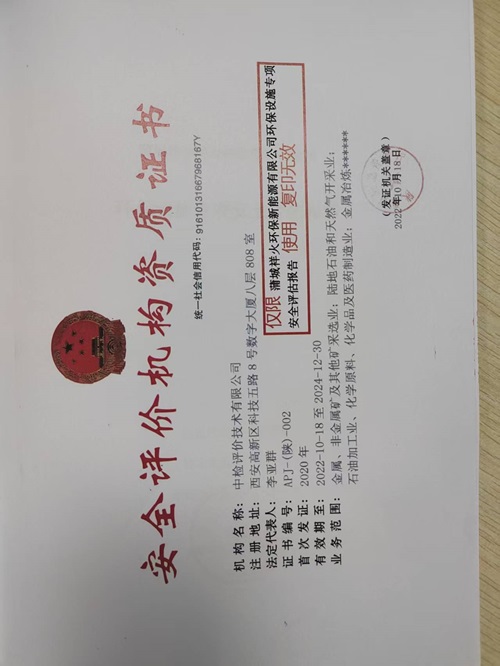 安全评价机构资质证书
统一社会信用代码：91610131667968167Y
机构名称：中检评价技术有限公司
注册地址：西安高新区科技五路8号数字大厦八层808室
法定代表人：李亚群
证书编号：APJ-(陕)-002
首次发证：2020年
有效期至：2022-10-18至2024-12-30
业务范围：金属、非金属矿及其他矿采选业；陆地石油和天然气开采业；
石油加工业、化学原料、化学品及医药制造业；金属冶炼******
仅限 蒲城祥火环保新能源有限公司环保设施专项
安全评估报告 使用 复印无效
（发证机关盖章）
2022年10月18日